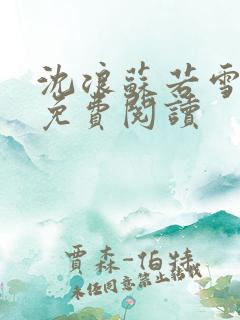 沈浪蘇若雪
免費閱讀
賈森-伯特
未經同意禁止轉載